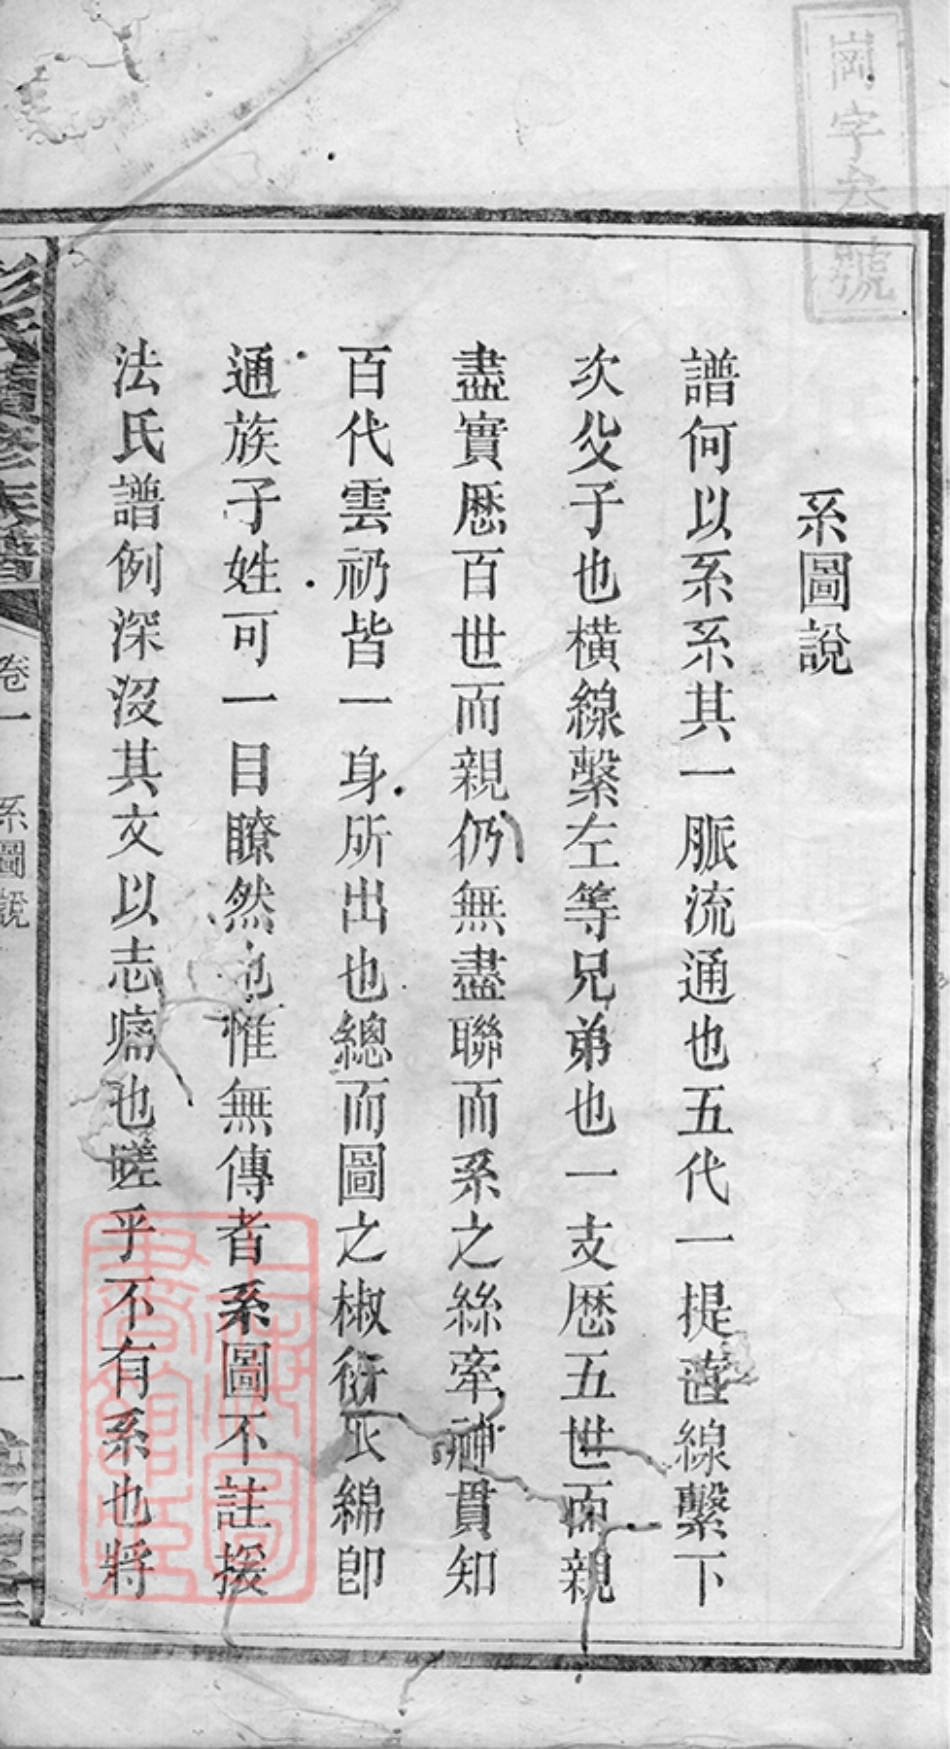 岡字六號
系圖說
譜何以系系其一脈流通也五代一提直線繫下
次父子也橫線繫左等兄弟也一支厯五世而親
盡實厯百世而親仍無盡聯而系之絲牽神貫知
百代雲礽皆一身所出也總而圖之椒衍瓜綿卽
通族子姓可一目瞭然也惟無傳者系圖不註援
法氏譜例深沒其文以志痛也嗟乎不有系也將
彭氏續修族譜
卷一
系圖說
一
上海圖書館藏